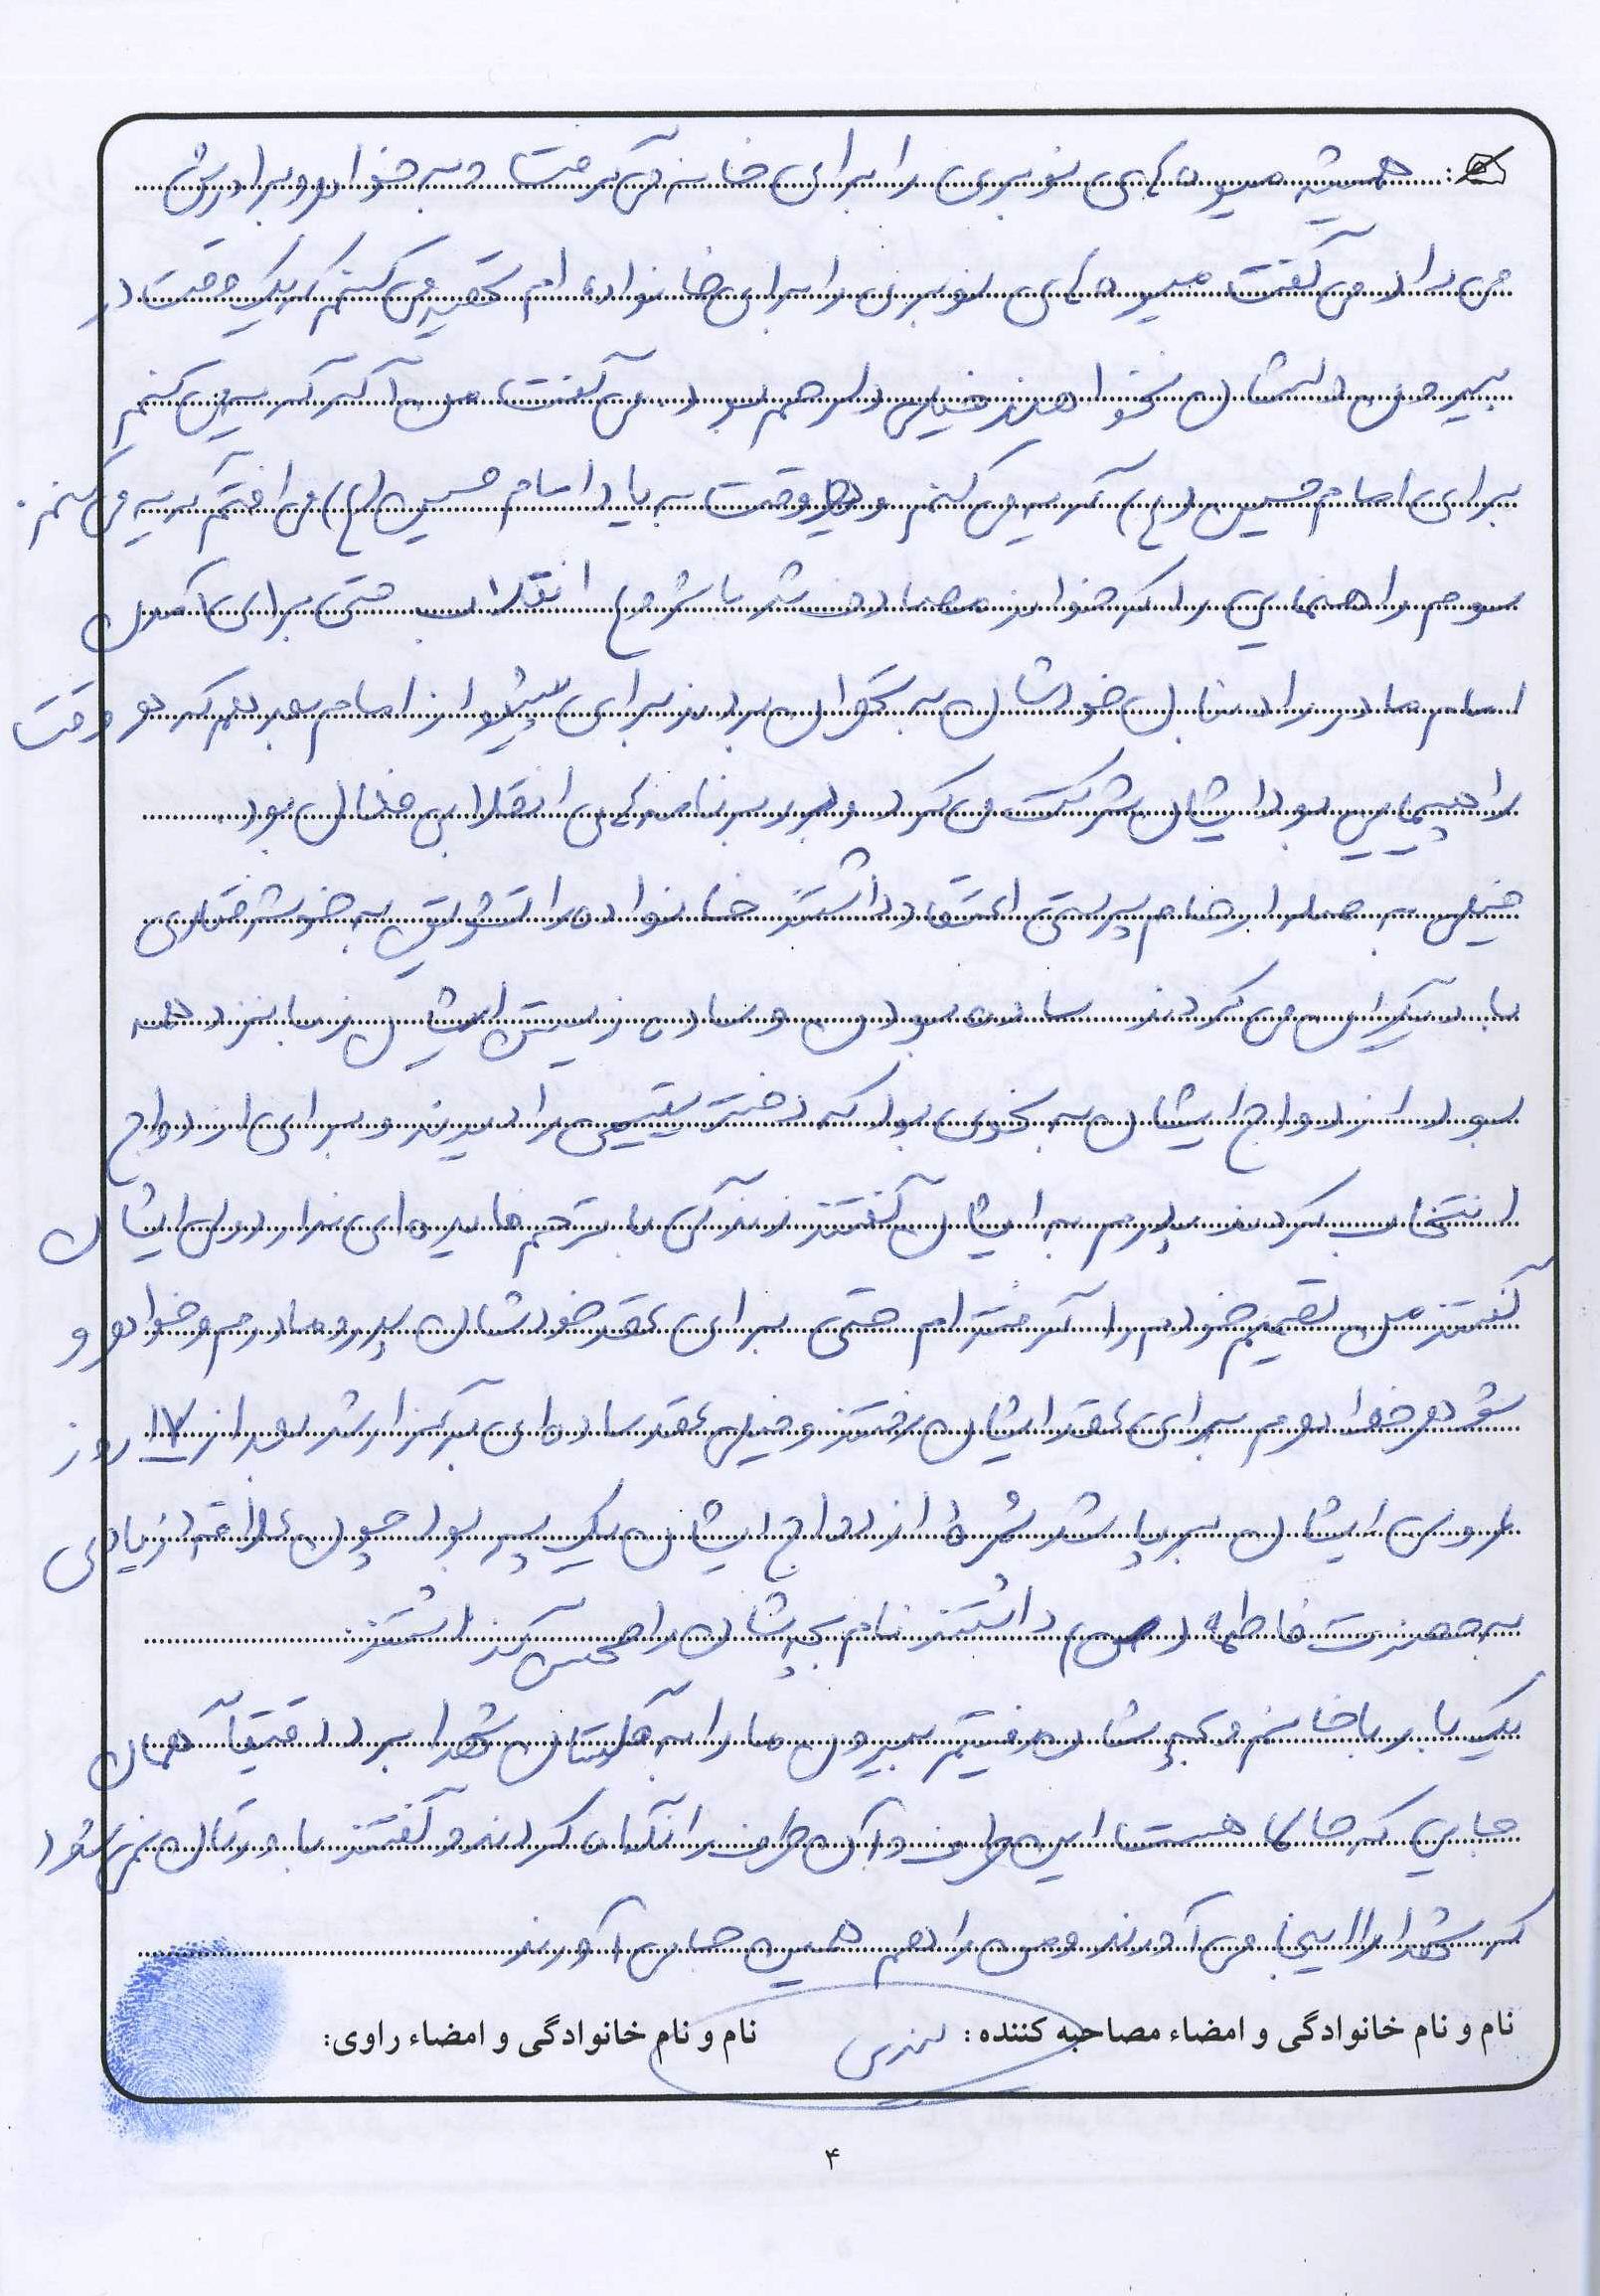 همیشه میوه های نوبری را برای خانه می گرفت و به خواهر و برادرش
می داد می گفت میوه های نوبری را برای خانواده ام تهیه می کنم که یک وقت در
بیرون دلشان نخواهد خیلی دل رحم بود. می گفت من اگر گریه می کنم
برای امام حسین (ع) گریه می کنم و هر وقت به یاد امام حسین (ع) می افتم گریه می کنم.
سوم راهنمایی را که خواند مصادف شد با شروع انقلاب حتی برای آمدن
امام مادر را دنبال خودشان به تهران بردند برای پیشواز امام بعد هم که هر وقت
راهپیمایی بود ایشان شرکت می کرد و در برنامه های انقلابی فعال بود.
خیلی به صله ارحام پرستی اعتقاد داشتند خانواده را تشویق به خوشرفتاری
با دیگران می کردند ساده بودن و ساده زیستی ایشان زبانزد همه
بود. ازدواج ایشان به نحوی بود که دختر یتیمی را دیدند و برای ازدواج
انتخاب کردند پدرم به ایشان گفتند زندگی با ترحم فایده ای ندارد ولی ایشان
گفتند من تصمیم خودم را گرفته ام حتی برای عقد خودشان پدر و مادرم و خواهر و
شوهر خواهرم برای عقد ایشان رفتند و خیلی عقد ساده ای برگزار شد بعد از ۱۷ روز
عروسی ایشان برپا شد ثمره ازدواج ایشان یک پسر بود چون علاقه زیادی
به حضرت فاطمه (س) داشتند نام بچه شان را محسن گذاشتند.
یک بار با خانم و بچه شان رفتیم بیرون ما را به گلستان شهدا برد دقیقاً همان
جایی که حالا هست این طرف و آن طرف را نگاه کردند و گفتند باورتان نمی شود
که شهدا را اینجا می آورند و من را هم همین جا می آورند
نام و نام خانوادگی و امضاء مصاحبه کننده: نام و نام خانوادگی و امضاء راوی:
۴